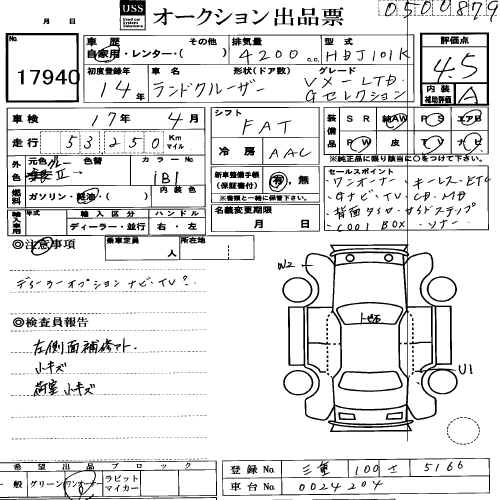 USS オークション出品票
0500879
月 日
No. 17940
車歴 自家用・レンター・( ) その他
排気量 4200 c.c.
型式 HDJ101K
評価点 4.5
初度登録年 14年
車名 ランドクルーザー
形状(ドア数)
グレード VXーLTD. Gセレクション
内装 補助評価 A
車検 17年 4月
シフト FAT
装備品 SR 純AW PS エアB
PW 皮 TV ナビ
※純正品に限り該当に○をつけて下さい
走行 53250 Km マイル
冷房 AAC
セールスポイント
ワンオーナー・キーレス・ETC
Gナビ・TV・CD・MD
背面タイヤ・サイドステップ
COOL BOX・ソナー
外色 元色 グレー 色替
カラーNo. 1B1
燃料 ガソリン・軽油・( )
内装色
新車整備手帳(保証書付) 有・無
※書類と一緒に保管して下さい。
名義変更期限 月 日
輸入車用 年式 輸入区分 ハンドル
ディーラー・並行 右・左
◎注意事項
乗車定員 人
所在地
ディーラーオプション ナビ・TV?
◎検査員報告
左側面補修アト.
小キズ
荷室小キズ
W2
U1
希望出品ブロック
一般 グリーン ワンオーナー ラビットマイカー
登録No. 三重 100 さ 5166
車台No. 0024204